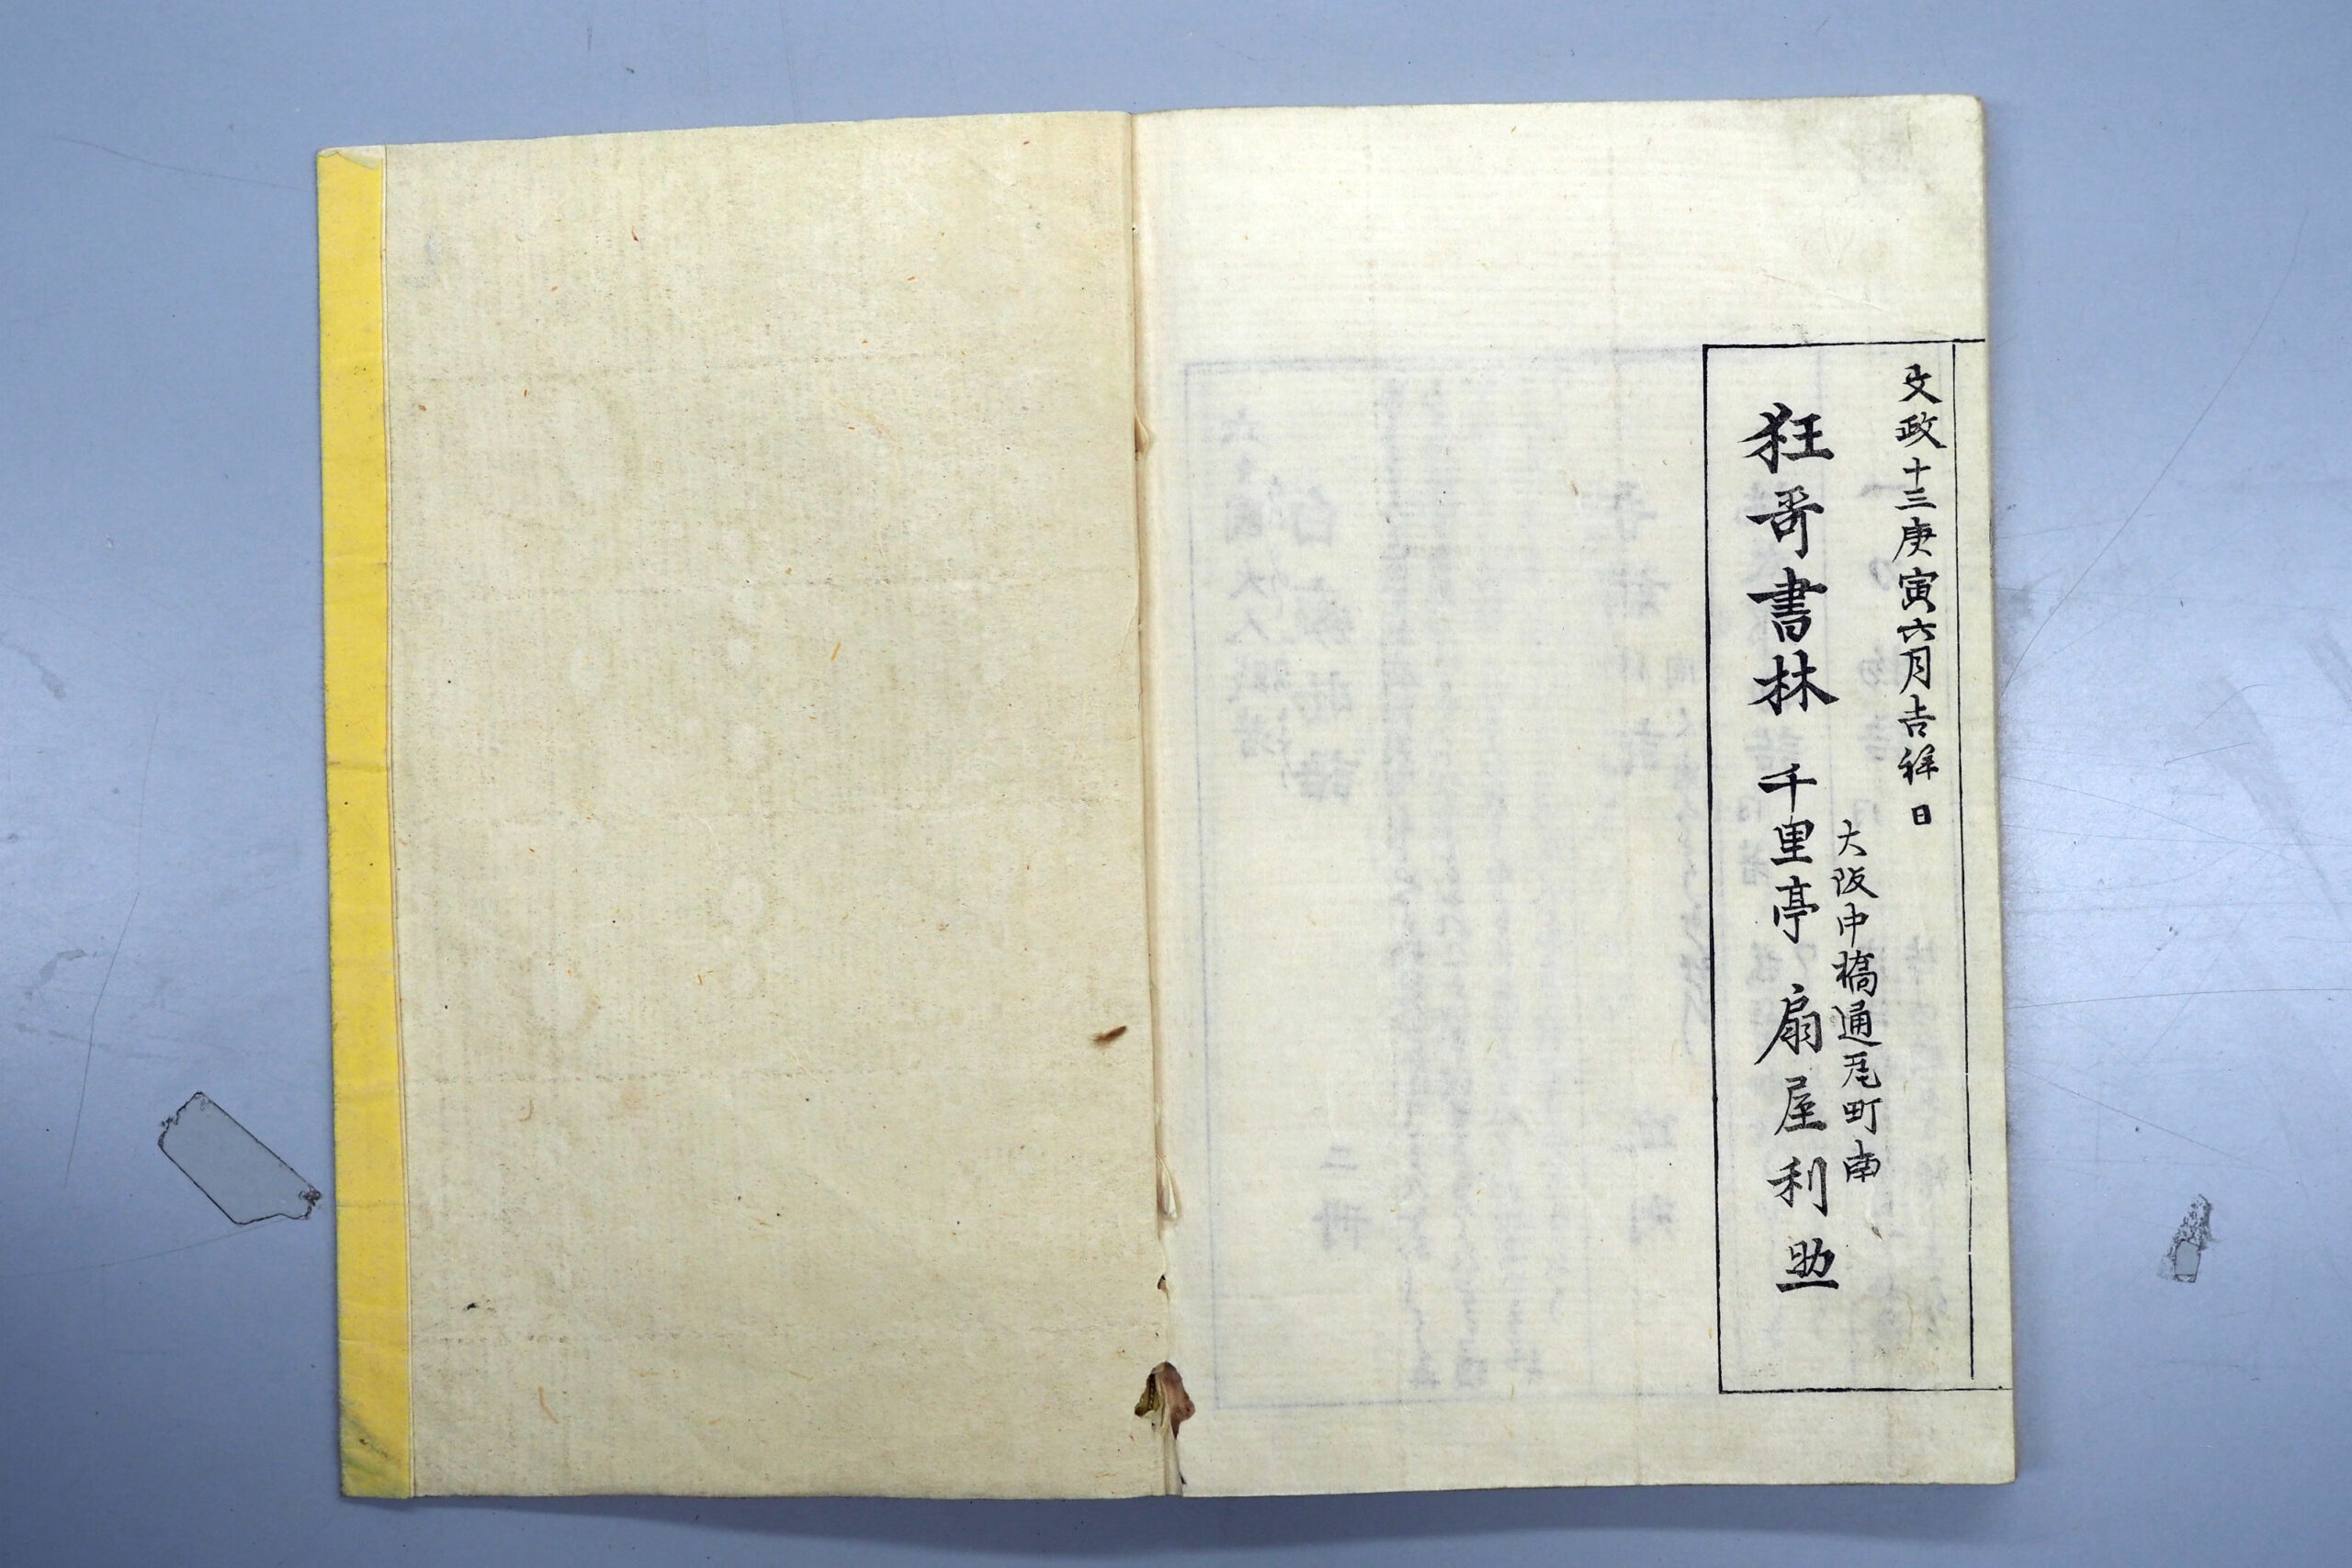 文政十三庚寅六月吉祥日
大阪中橋通瓦町南
狂哥書林 千里亭 扇屋利助